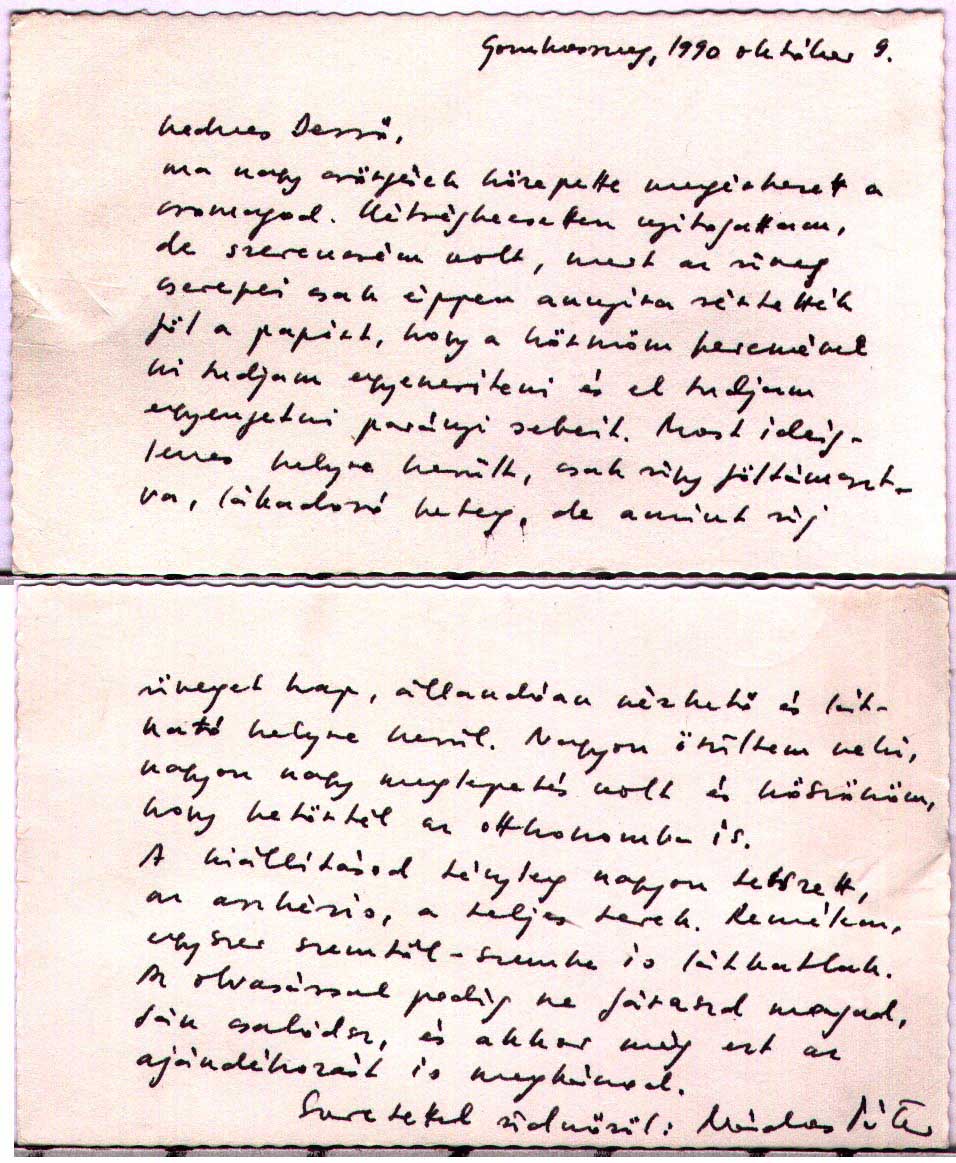 Gombosszeg, 1990 október 9.
kedves Dezső,
ma nagy csöngések közepette megérkezett a
csomagod. Kétségbeesetten nyitogattam,
de szerencsém volt, mert az üveg
cserepei csak éppen annyira sértették
föl a papírt, hogy a körmöm peremével
ki tudjam egyenesíteni és el tudjam
egyengetni parányi sebeit. Most ideig-
lenes helyre került, csak úgy föltámaszt-
va, lábadozó beteg, de amint új
üveget kap, állandóan nézhető és lát-
ható helyre kerül. Nagyon örültem neki,
nagyon nagy meglepetés volt és köszönöm,
hogy betörtél az otthonomba is.
A kiállításod tényleg nagyon tetszett,
az aszkézis, a teljes terek. Remélem,
egyszer szemtől-szembe is láthatlak.
Az olvasással pedig ne fáraszd magad,
tán csalódsz, és akkor még ezt az
ajándékozást is megbánod.
Szeretettel üdvözöl: Nádas Péter